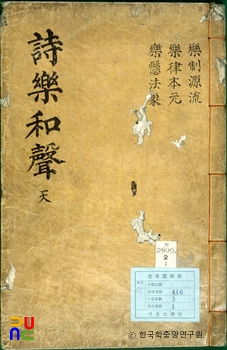 詩樂和聲 天
樂制源流
樂律本元
樂懸法象
2600
2
416
3
1
© 한국학중앙연구원